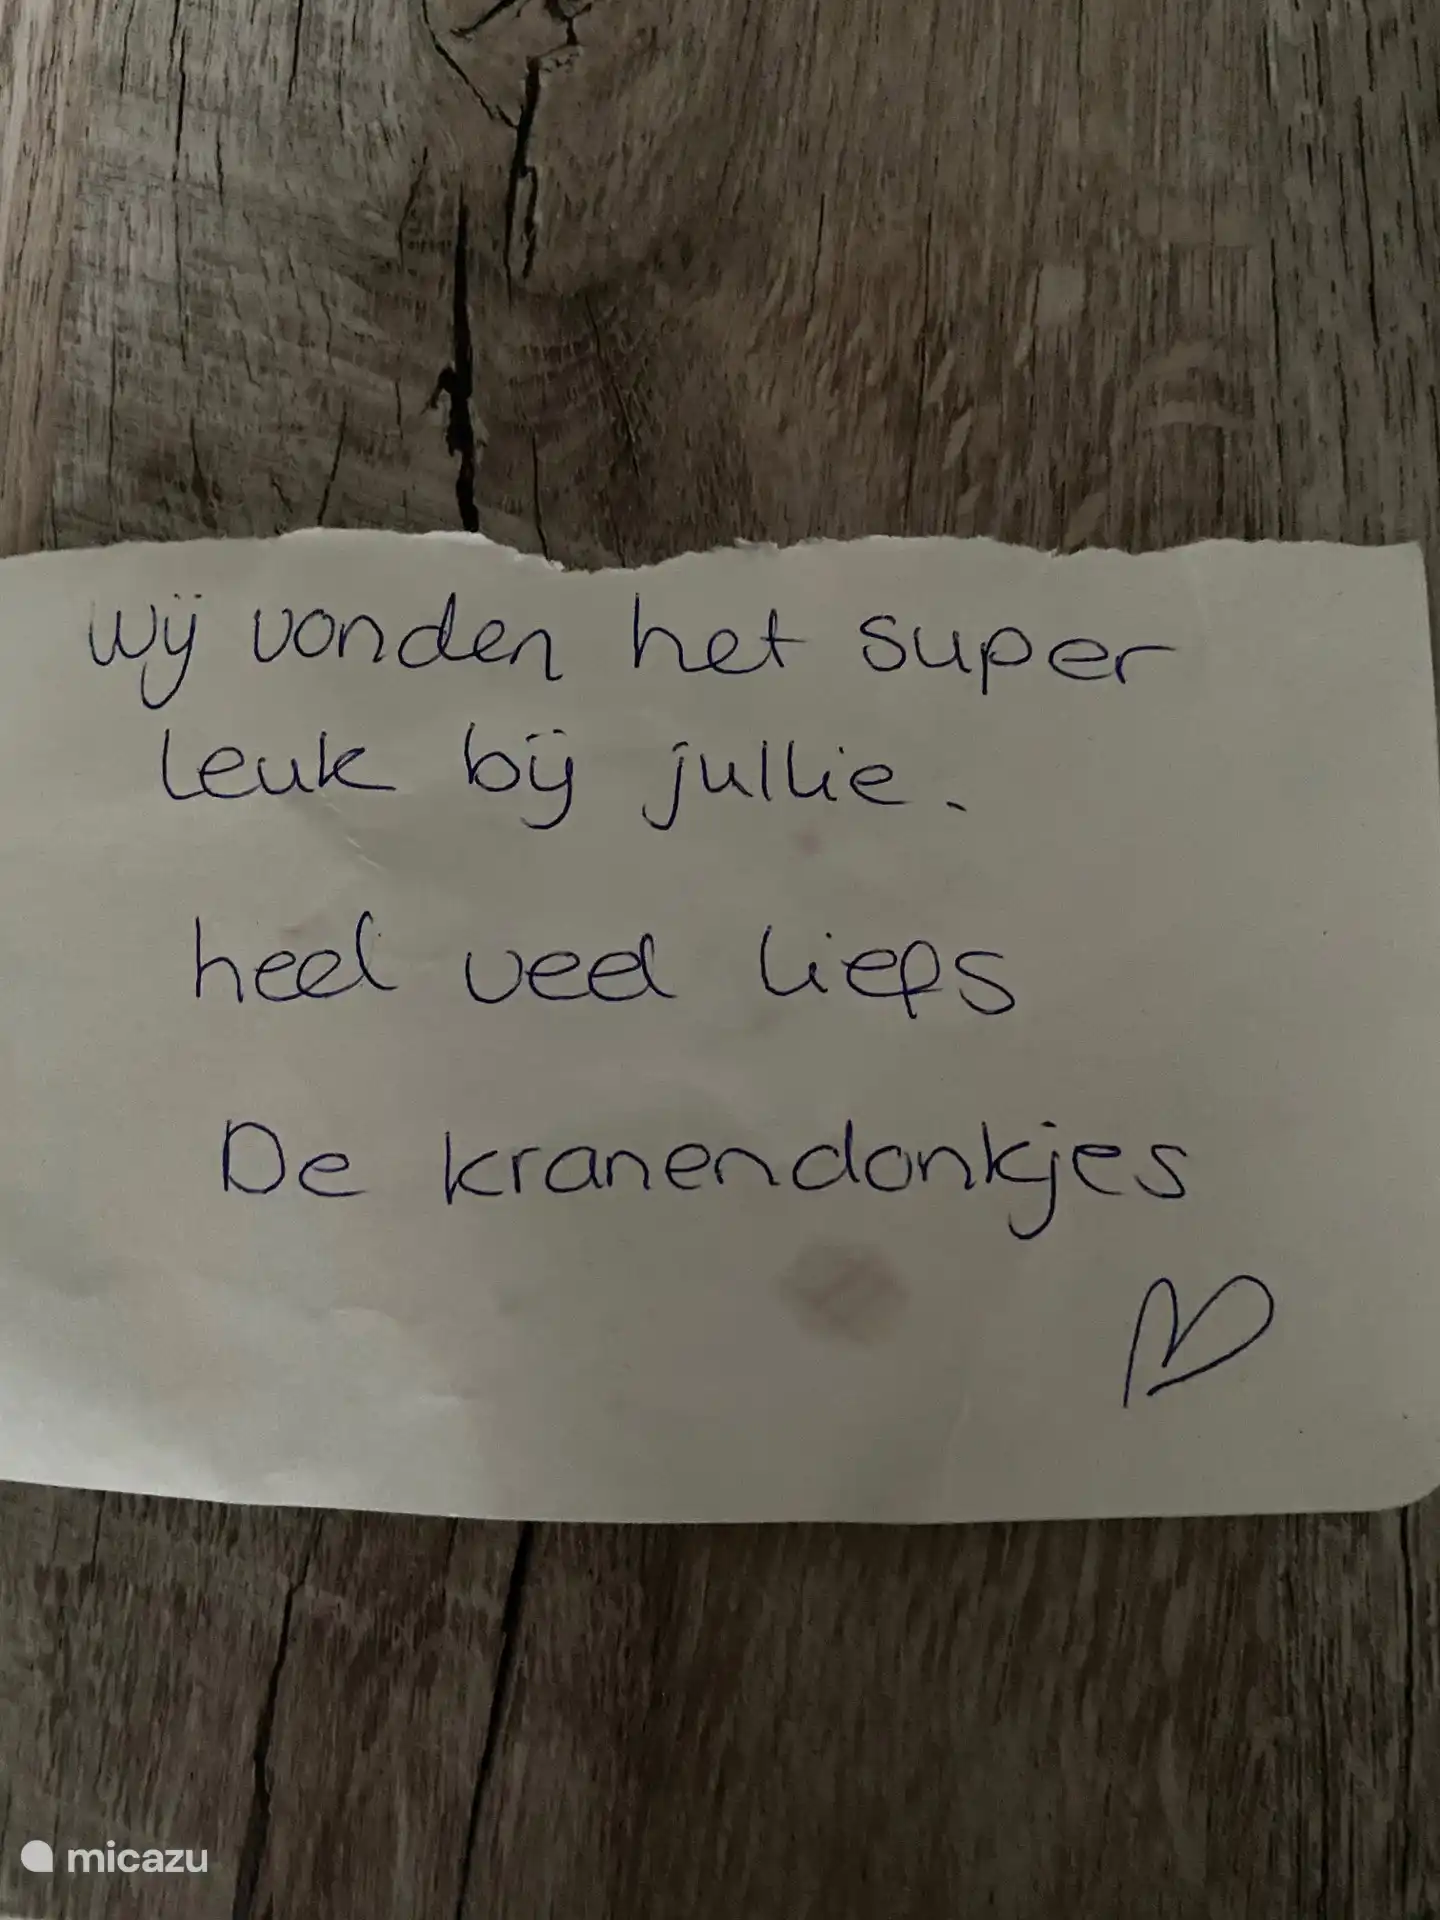 wij vonden het super
leuk bij jullie.
heel veel liefs
De kranendonkjes
micazu